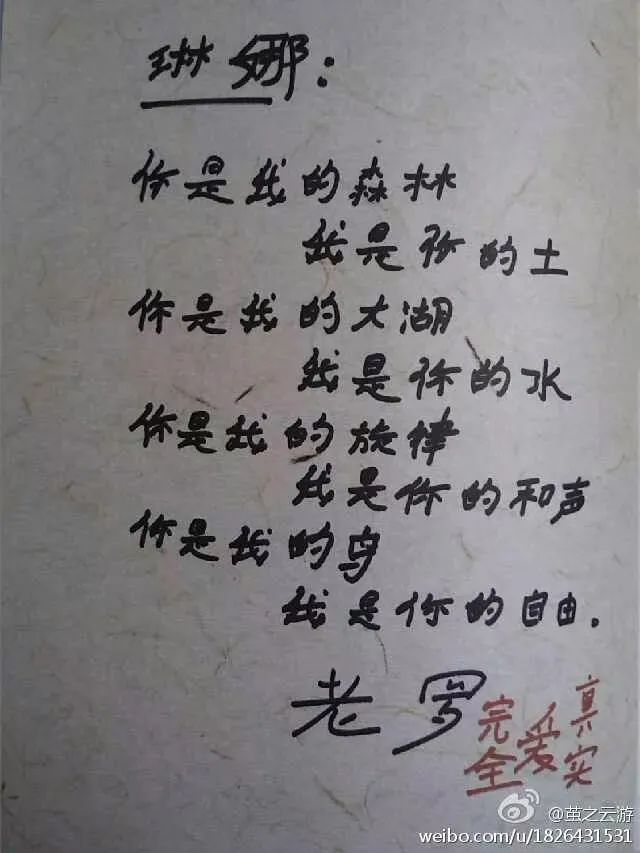 琳娜：
你是我的森林
我是你的土
你是我的大湖
我是你的水
你是我的旋律
我是你的和声
你是我的鸟
我是你的自由.
老罗
完全 爱 真实
@茧之云游
weibo.com/u/1826431531